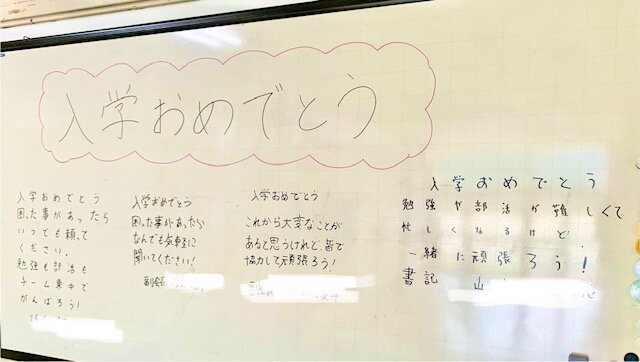 入学おめでとう
入学おめでとう
困った事があったら
いつでも頼って
ください。
勉強も部活も
チーム東中で
がんばろう!
入学おめでとう
困った事があったら
なんでも気軽に
聞いてください!
入学おめでとう
これから大変なことが
あると思うけれど、皆で
協力して頑張ろう!
入学おめでとう
勉強や部活が難しくて
忙しくなるけど、
一緒に頑張ろう!
書記 山